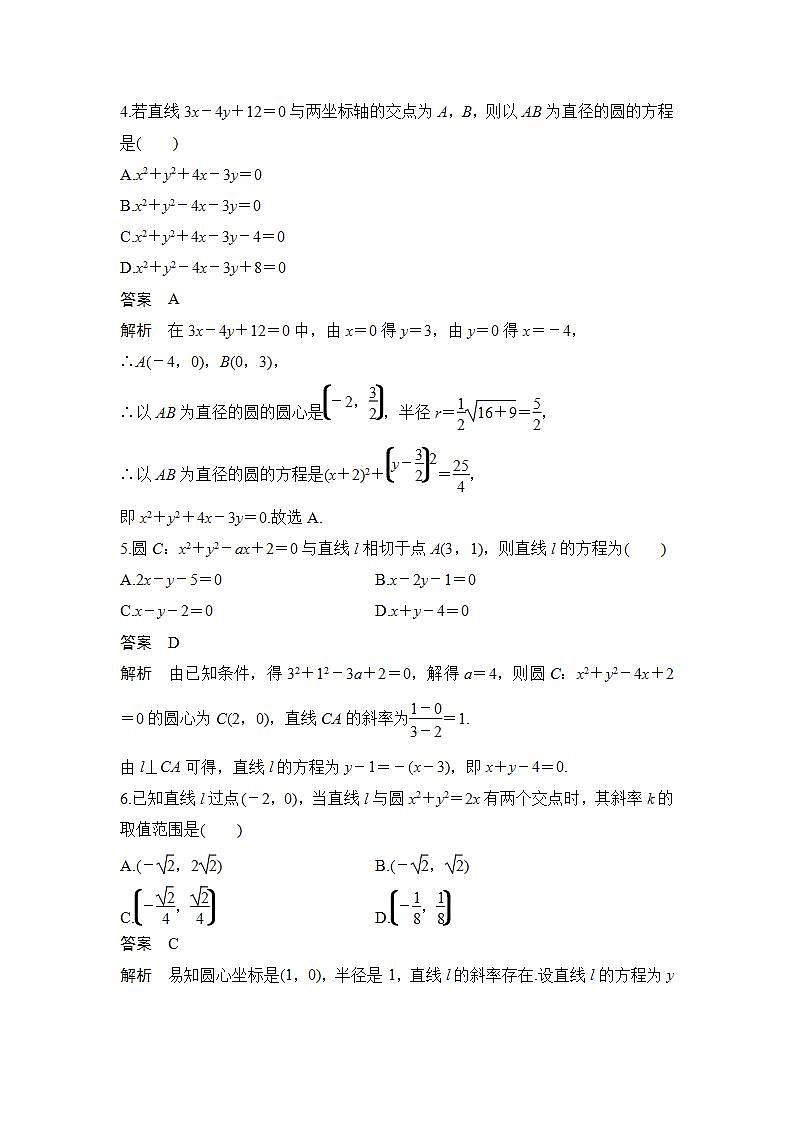 4.若直线 3x－4y＋12＝0 与两坐标轴的交点为 A，B，则以 AB 为直径的圆的方程
是(　　)
A.x²＋y²＋4x－3y＝0
B.x²＋y²－4x－3y＝0
C.x²＋y²＋4x－3y－4＝0
D.x²＋y²－4x－3y＋8＝0
答案　A
解析　在 3x－4y＋12＝0 中，由 x＝0 得 y＝3，由 y＝0 得 x＝－4，
∴A(－4，0)，B(0，3)，
∴以 AB 为直径的圆的圆心是(－2，3/2)，半径 r＝1/2√(16＋9)＝5/2，
∴以 AB 为直径的圆的方程是(x＋2)²＋(y－3/2)²＝25/4，
即 x²＋y²＋4x－3y＝0.故选 A.
5.圆 C：x²＋y²－ax＋2＝0 与直线 l 相切于点 A(3，1)，则直线 l 的方程为(　　)
A.2x－y－5＝0　　B.x－2y－1＝0
C.x－y－2＝0　　D.x＋y－4＝0
答案　D
解析　由已知条件，得 3²＋1²－3a＋2＝0，解得 a＝4，则圆 C：x²＋y²－4x＋2
＝0 的圆心为 C(2，0)，直线 CA 的斜率为(1－0)/(3－2)＝1.
由 l⊥CA 可得，直线 l 的方程为 y－1＝－(x－3)，即 x＋y－4＝0.
6.已知直线 l 过点(－2，0)，当直线 l 与圆 x²＋y²＝2x 有两个交点时，其斜率 k 的
取值范围是(　　)
A.(－√2，2√2)　　B.(－√2，√2)
C.(－√2/4，√2/4)　　D.(－1/8，1/8)
答案　C
解析　易知圆心坐标是(1，0)，半径是 1，直线 l 的斜率存在.设直线 l 的方程为 y